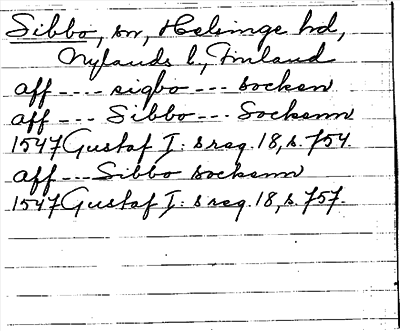 Sibbo, sn, Helsinge hd,
Nylands l., Finland
aff ---- sigbo --- socken
aff --- Sibbo --- Sockenn
1547 Gustaf I: s reg. 18, s. 754.
aff --- Sibbo sockenn
1547 Gustaf I: s reg. 18, s. 757.